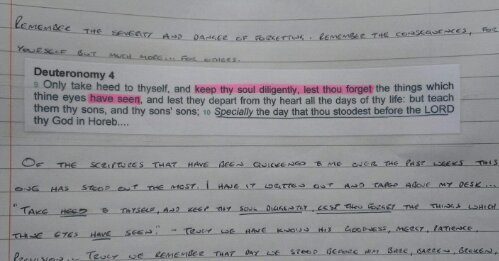 REMEMBER THE SEVERITY AND DANGER OF FORGETTING. REMEMBER THE CONSEQUENCES, FOR
YOURSELF BUT MUCH MORE... FOR OTHERS.
Deuteronomy 4
9 Only take heed to thyself, and keep thy soul diligently, lest thou forget the things which
thine eyes have seen, and lest they depart from thy heart all the days of thy life: but teach
them thy sons, and thy sons' sons; 10 Specially the day that thou stoodest before the LORD
thy God in Horeb....
OF THE SCRIPTURES THAT HAVE BEEN QUICKENED TO ME OVER THE PAST WEEKS THIS
ONE HAS STOOD OUT THE MOST. I HAVE IT WRITTEN OUT AND TAPED ABOVE MY DESK...
"TAKE HEED TO THYSELF, AND KEEP THY SOUL DILIGENTLY, LEST THOU FORGET THE THINGS WHICH
THINE EYES HAVE SEEN" - TRULY WE HAVE KNOWN HIS GOODNESS, MERCY, PATIENCE,
PROVISION... TRULY WE REMEMBER THAT DAY WE STOOD BEFORE HIM BARE, BARREN, BROKEN,